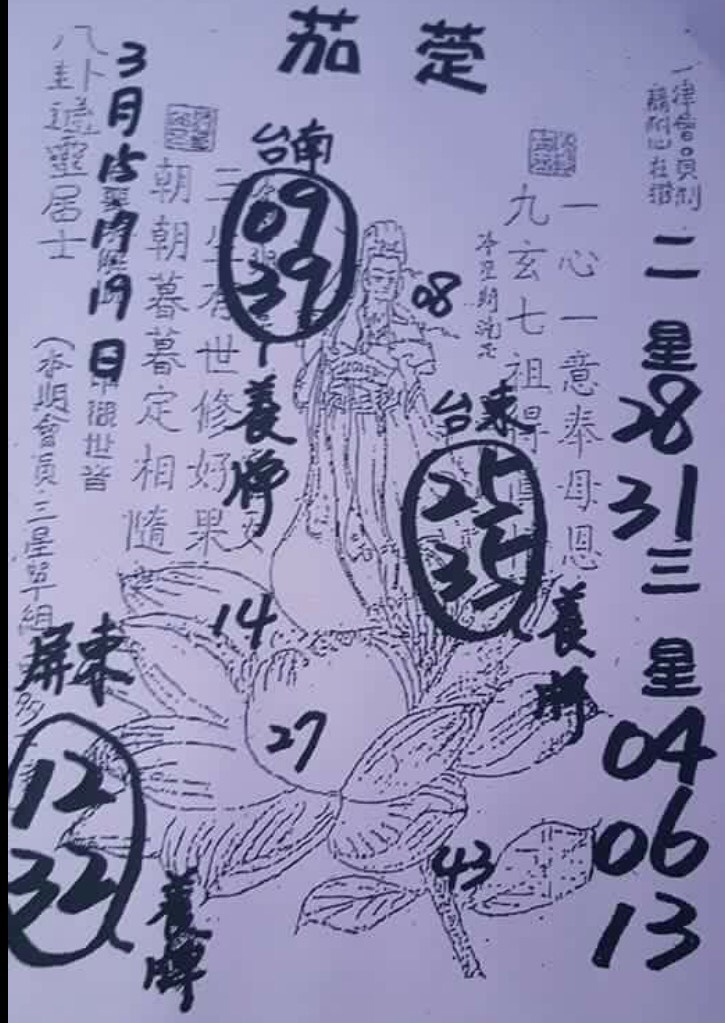 茄萣
一律會員制
二星
28
31
三星
04
06
13
一心一意奉母恩
九玄七祖得
台東
25
35
養牌
08
台南
09
39
養牌
三
有世修好果
朝朝暮暮定相隨
3月15
17
19日
八卦
靈居士
(本期會員三星單組
14
27
43
屏東
12
32
養牌